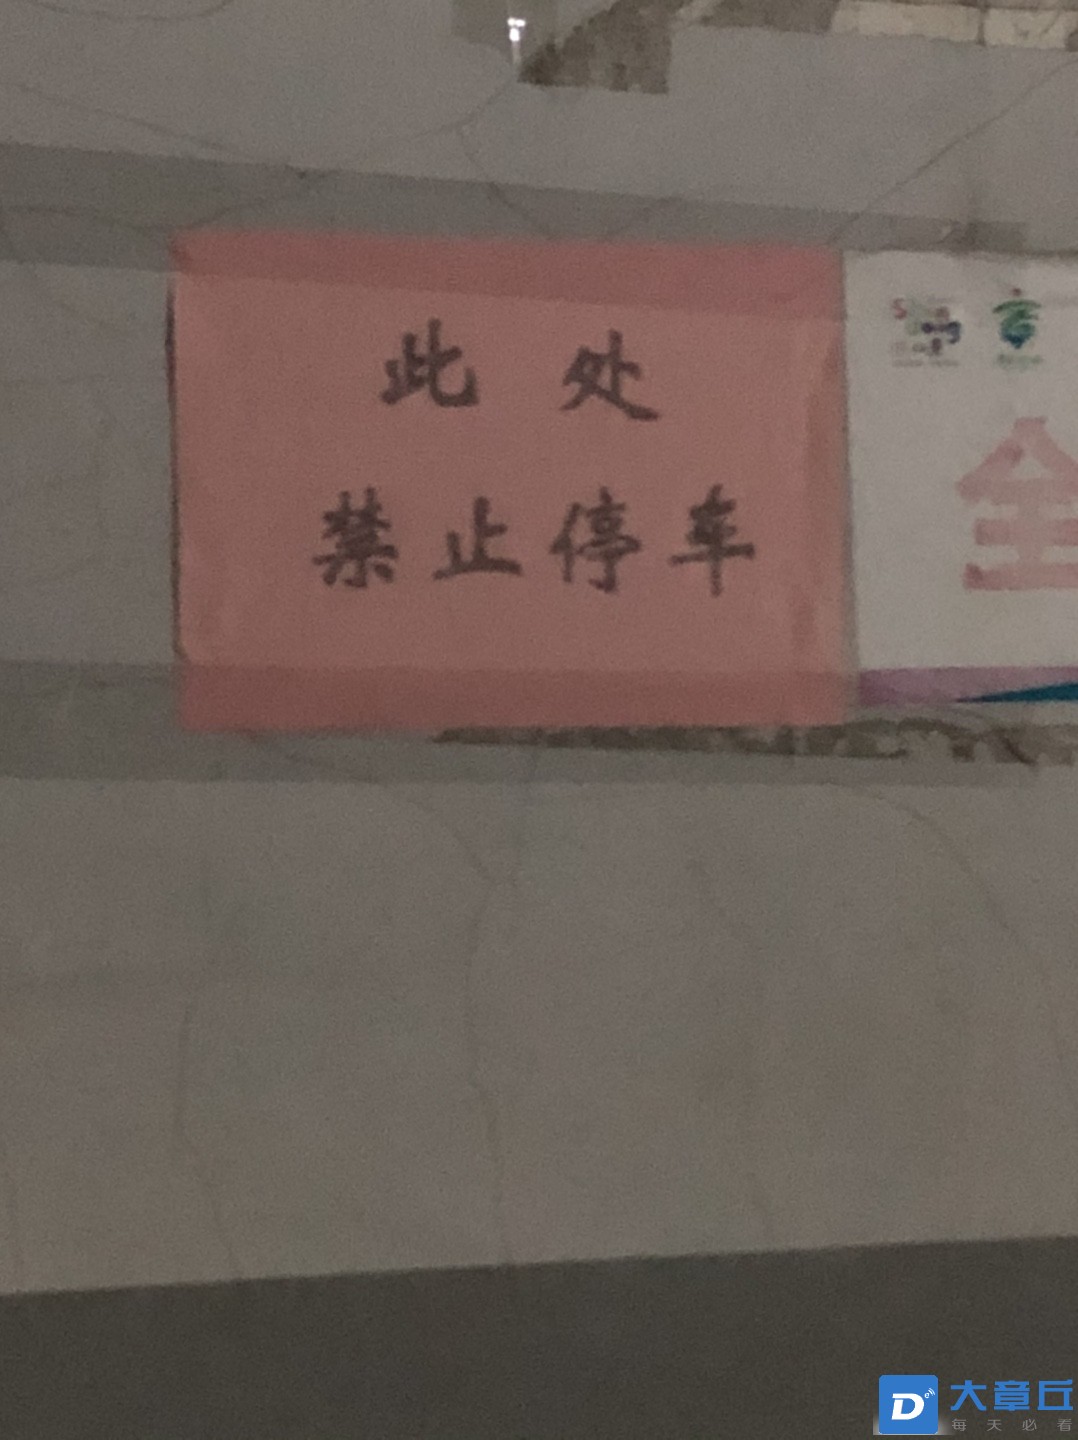 此处
禁止停车
全
大章丘
每天必看